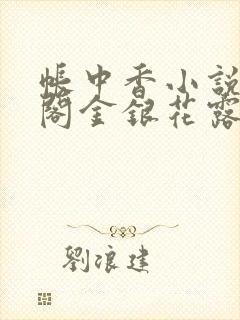 帳中香小說
閣金銀花露
劉浪建